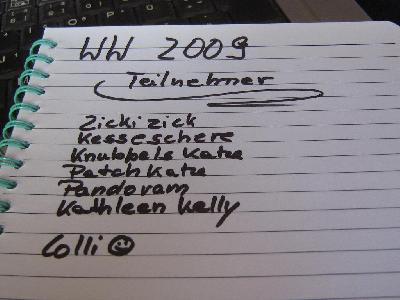 WW 2009
Teilnehmer
Zickizick
Kesseschere
Knubbels Katze
Patch Katze
Pandoram
Kathleen Kelly
Lolli ☺